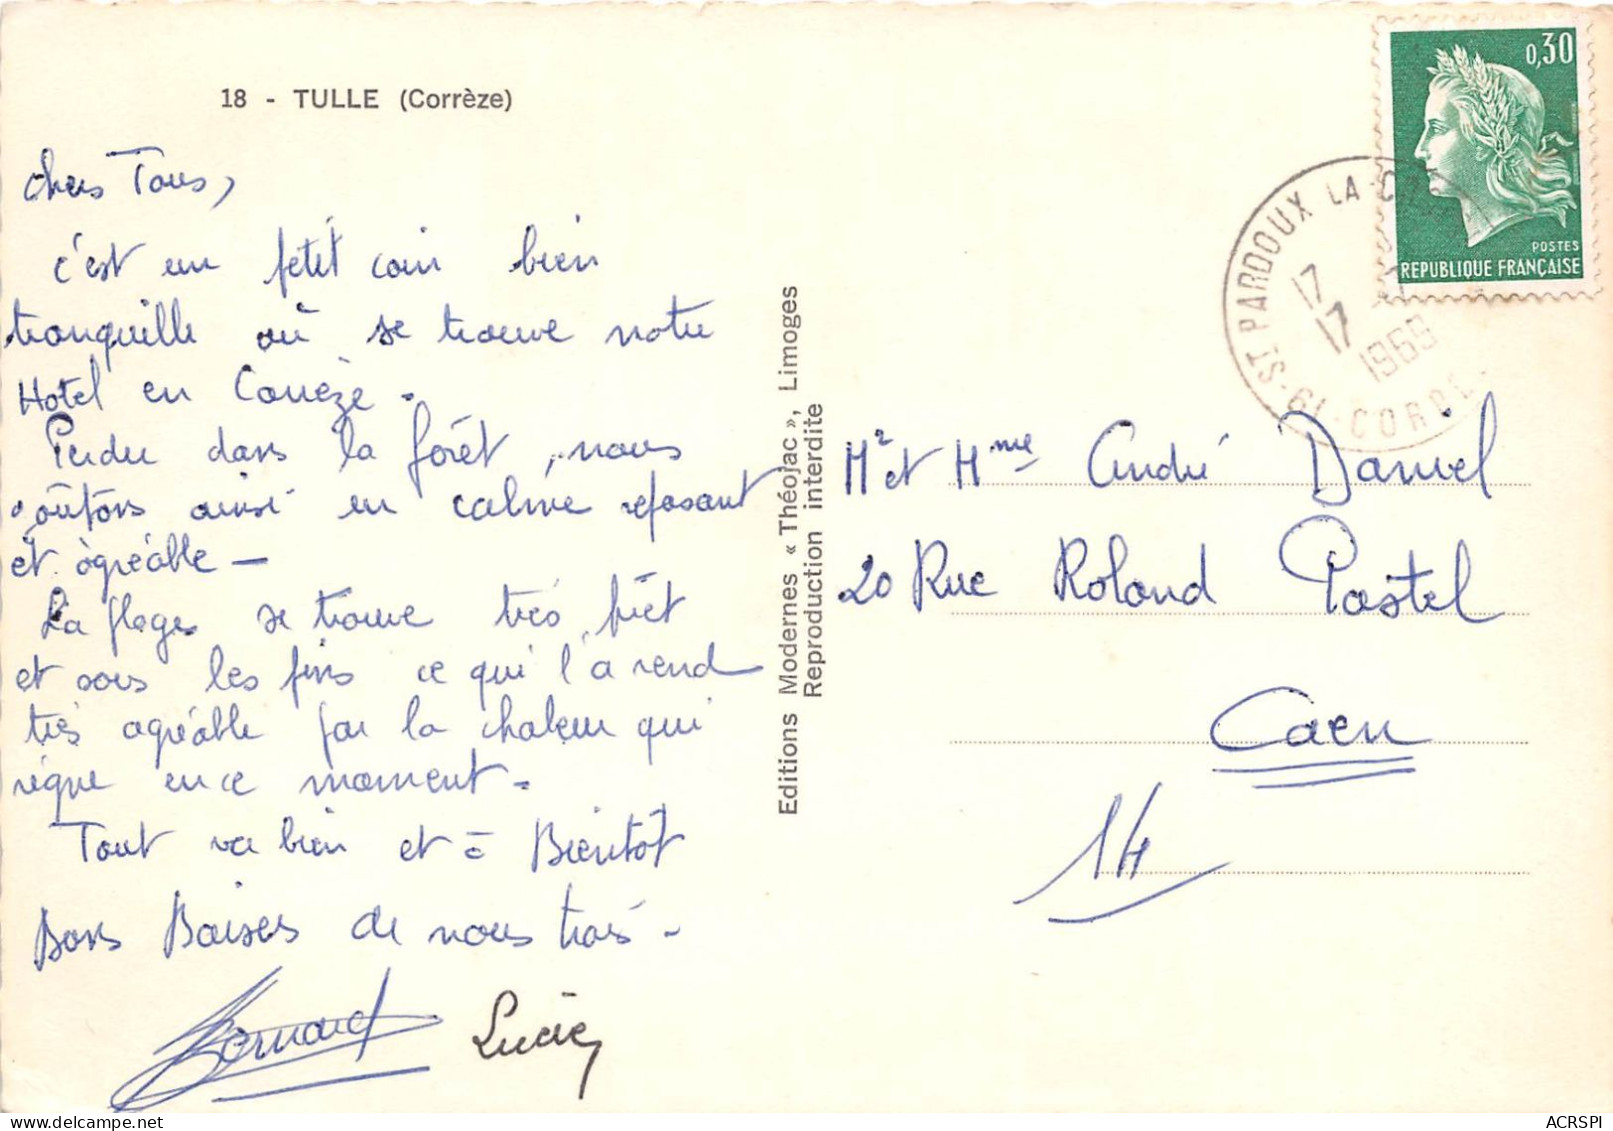 18 - TULLE (Corrèze)
Chers Tous,
c'est un petit coin bien
tranquille où se trouve notre
Hotel en Corrèze.
Perdu dans la forêt, nous
goûtons ainsi en calme reposant
et agréable —
La plage se trouve très prêt
et sous les pins ce qui l'a rend
très agréable par la chaleur qui
règne en ce moment.
Tout va bien et à Bientôt
Bons Baisers de nous trois -
Bernard Lucie
Editions Modernes « Théojac », Limoges
Reproduction interdite
0,30
POSTES
REPUBLIQUE FRANÇAISE
ST PARDOUX LA
17
17
1969
19 - CORRE
Mr et Mme André Daniel
20 Rue Roland Pastel
Caen
14
ACRSPI